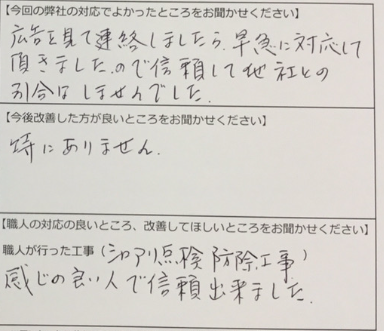 【今回の弊社の対応でよかったところをお聞かせください】
広告を見て連絡しましたら、早急に対応して
頂きましたので信頼して他社との
引合はしませんでした。
【今後改善した方が良いところをお聞かせください】
特にありません。
【職人の対応の良いところ、改善してほしいところをお聞かせください】
職人が行った工事（シロアリ点検 防除工事）
感じの良い人で信頼出来ました。